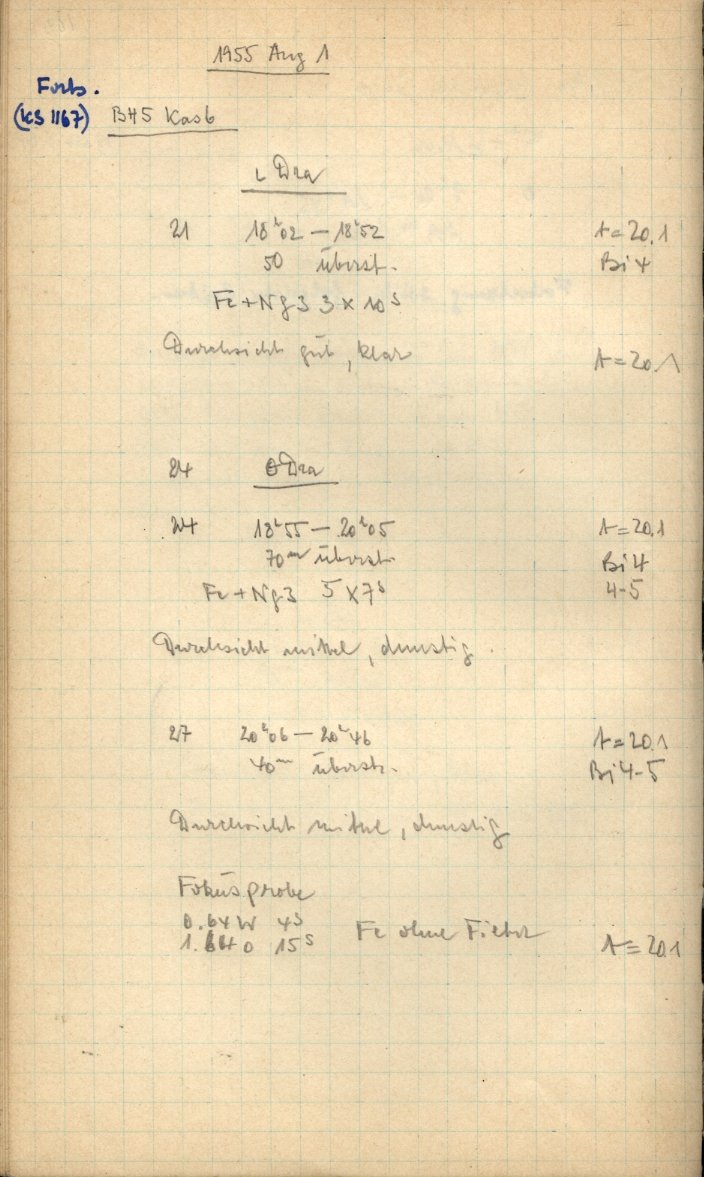 1955 Aug 1
Forts.
(KS 1167) B45 Kas6
ι Dra
21 18ʰ02 — 18ʰ52 A=20.1
50 überst. Bi 4
Fe+Ng3 3 x 10ˢ
Durchsicht gut, klar A=20.1
24 θ Dra
24 18ʰ55 — 20ʰ05 A=20.1
70ᵐ überst. Bi 4
Fe+Ng3 5 x 7ˢ 4-5
Durchsicht mittel, dunstig.
27 20ʰ06 — 20ʰ46 A=20.1
40ᵐ überst. Bi 4-5
Durchsicht mittel, dunstig
Fokusprobe
0.64 W 4ˢ
Fe ohne Filter
15ˢ A=20.1